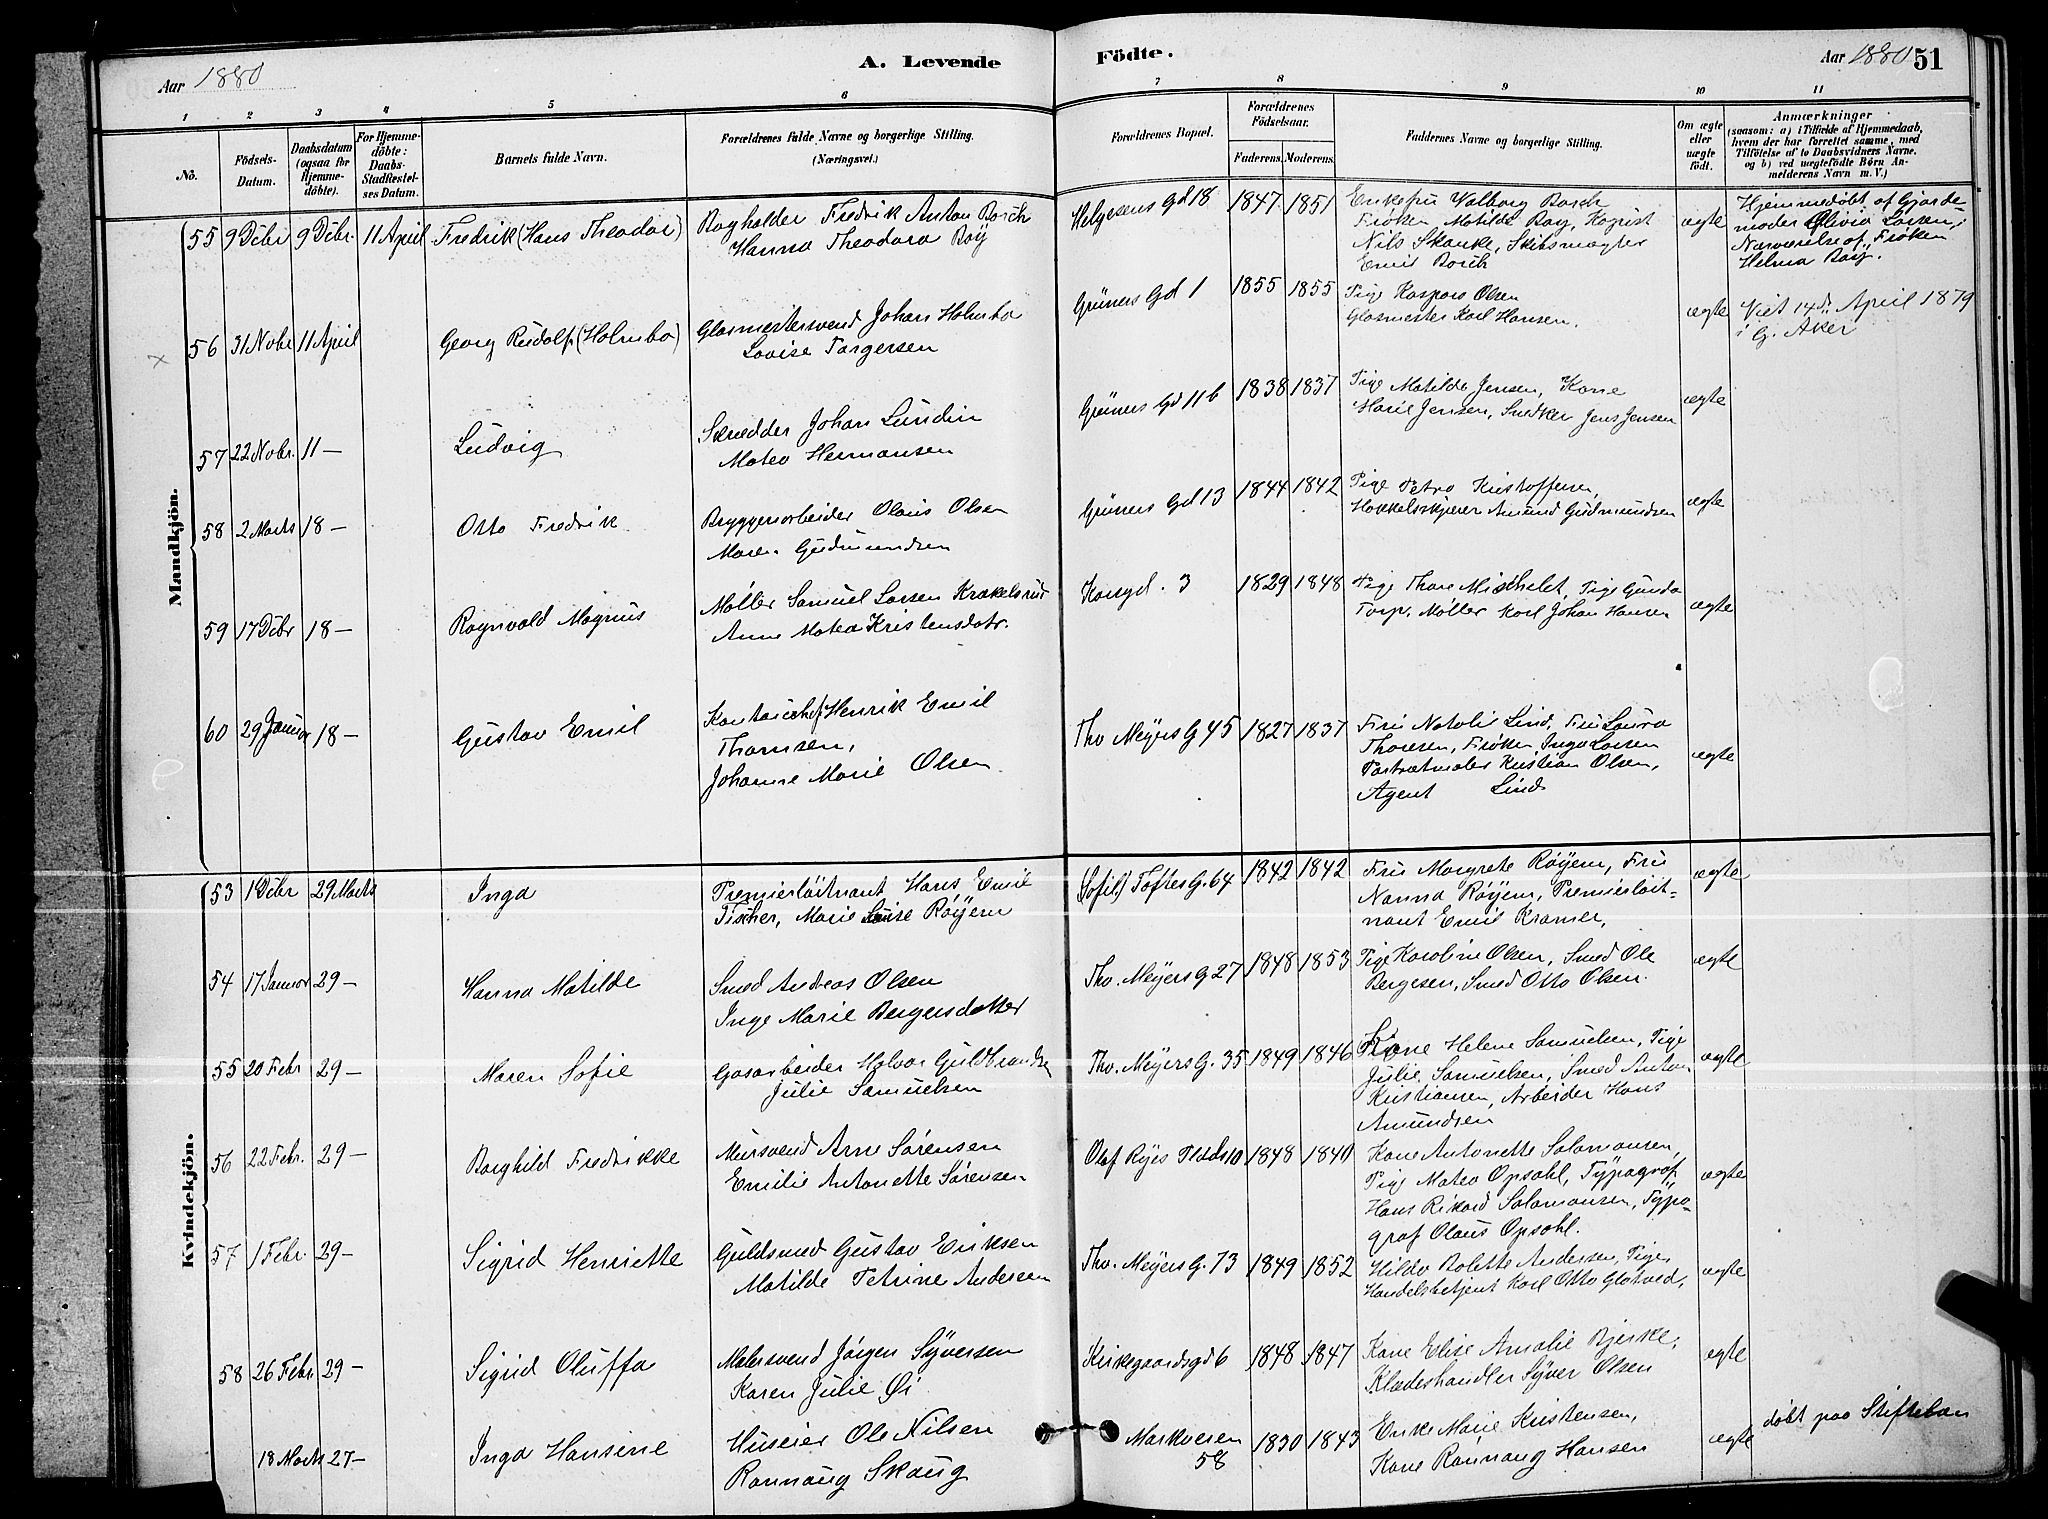 Aar 1880
A. Levende
Födte.
Aar 1880
51
1 2 3 4 5 6 7 8 9 10 11
No.
Födsels-Datum.
Daabsdatum (ogsaa för Hjemme-döbte).
For Hjemme-döbte: Daabs-Stadfæstel-ses Datum.
Barnets fulde Navn.
Forældrenes fulde Navne og borgerlige Stilling.
(Næringsvei.)
Forældrenes Bopæl.
Forældrenes Födselsaar.
Faderens. Moderens.
Faddernes Navne og borgerlige Stilling.
Om ægte eller uægte födt.
Anmærkninger
(saasom: a) i Tilfælde af Hjemmedaab,
hvem der har forrettet samme, med
Tilföielse af to Daabsvidners Navne.
og b) ved uægtefödte Börn An-
melderens Navn m. V.)
Mandkjön.
55 9 Dcbr 9 Dcbr. 11 April Fredrik (Hans Theodor) Bogholder Fredrik Anton Borch
Hanna Theodora Boÿ
Helgesens Gd 18 1847 1851 Enkefru Valborg Borch
Frøken Matilde Boy, Kopist
Nils Skanke, Skibsmægler
Emil Borch
ægte
Hjemmedøbt af Gjorde
moder Olivia Larsen, i
Nærværelse af Frøken
Helma Boy.
56 31 Nobr 11 April Georg Rudolf (Holmbo) Glasmestersvend Johan Holmbo
Lovise Torgersen
Grüners Gd 1 1855 1855 Pige Kaspara Olsen
Glasmester Karl Hansen.
ægte
Viet 14de April 1879
i G. Aker
57 22 Nobr. 11 — Ludvig Skrædder Johan Lundin
Matea Hermansen
Grüners Gd 11 b 1838 1837 Pige Matilde Jensen, Kone
Marie Jensen, Snedker Jens Jensen
ægte
58 2 Marts 18 — Otto Fredrik Bryggeriarbeider Olaus Olsen
Maren Gudmundsen
Grüners Gd 13 1844 1842 Pige Petra Kristoffersen,
Hakkelsskjærer Amund Gudmundsen
ægte
59 17 Dcbr 18 — Ragnvald Magnus Møller Samuel Larsen Krakelsrud
Anne Matea Kristensdatr.
Korsgd. 3 1829 1848 Pige Thora Mischelet, Pige Gunda
Torp. Møller Karl Johan Hansen
ægte
60 29 Januar 18 — Gustav Emil Kontorchef Henrik Emil
Thomsen,
Johanne Marie Olsen
Thv Meÿers G 45 1827 1837 Fru Natalie Lind, Fru Laura
Thoresen, Frøken Inga Larsen
Portrætmaler Kristian Olsen,
Agent Lind
ægte
Kvindekjön.
53 1 Dcbr 29 Marts Inga Premierløitnant Hans Emil
Fischer, Marie Louise Røÿem
(Sofil.) Toftes G. 64 1842 1842 Fru Margrete Røÿem, Fru
Nanna Røÿem, Premierløit-
nant Emil Kramer,
ægte
54 17 Januar 29 — Hanna Matilde Smed Andreas Olsen
Inge Marie Bergersdatter
Thv. Meÿers G 27 1848 1853 Pige Karoline Olsen, Smed Ole
Bergesen, Smed Otto Olsen.
ægte
55 20 Febr 29 — Maren Sofie Gasarbeider Halvor Guldbrandsen
Julie Samuelsen
Thv. Meÿers G. 35 1849 1846 Kone Helene Samuelsen, Pige
Julie Samuelsen, Smed Anton
Kristiansen, Arbeider Hans
Amundsen
ægte
56 22 Febr. 29 — Borghild Fredrikke Mursvend Arne Sørensen
Emilie Antonette Sørensen
Olaf Ryes Plads 10 1848 1840 Kone Antonette Salomonsen,
Pige Matea Opsahl, Typograf
Hans Rikard Salomonsen, Typo-
graf Olaus Opsahl.
ægte
57 1 Febr. 29 — Sigrid Henriette Guldsmed Gustav Eriksen
Matilde Petrine Andersen
Thv. Meÿers G. 73 1849 1852 Hilda Bolette Andersen, Pige,
Handelsbetjent Karl Otto Glatved,
ægte
58 26 Febr 29 — Sigrid Oluffa Malersvend Jörgen Syversen
Karen Julie Øi
Kirkegaardsgd 6 1848 1847 Kone Elise Amalie Bjerke,
Klædeshandler Syver Olsen
ægte
18 Marts 27 — Inga Hansine Huseier Ole Nilsen
Rannaug Skaug
Markveien
58
1830 1843 Enke Marie Kristensen,
Kone Rannaug Hansen
ægte
døbt paa Stiftelsen